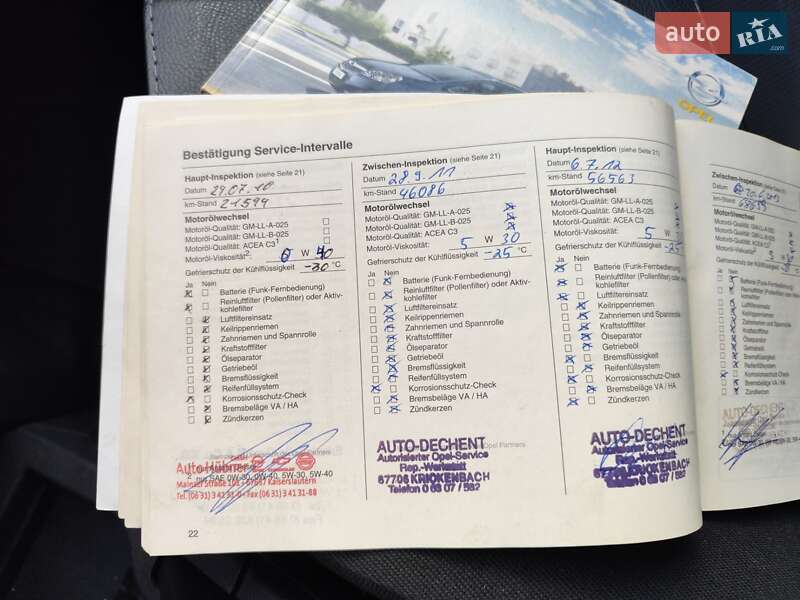 auto RIA .com
OPEL
Bestätigung Service-Intervalle
Haupt-Inspektion (siehe Seite 21)
Datum 29.07.10
km-Stand 21594
Motorölwechsel
Motoröl-Qualität: GM-LL-A-025
Motoröl-Qualität: GM-LL-B-025
Motoröl-Qualität: ACEA C3¹
Motoröl-Viskosität²: 0 W 40
Gefrierschutz der Kühlflüssigkeit -30 °C
Ja Nein
Batterie (Funk-Fernbedienung)
Reinluftfilter (Pollenfilter) oder Aktiv-
kohlefilter
Luftfiltereinsatz
Keilrippenriemen
Zahnriemen und Spannrolle
Kraftstofffilter
Ölseparator
Getriebeöl
Bremsflüssigkeit
Reifenfüllsystem
Korrosionsschutz-Check
Bremsbeläge VA / HA
Zündkerzen
Auto-Hübner
Mainzer Straße 108 - 67657 Kaiserslautern
Tel. (06 31) 3 41 31-0 - Fax (06 31) 3 41 31-88
2 nur SAE 0W-30, 0W-40, 5W-30, 5W-40
22
Zwischen-Inspektion (siehe Seite 21)
Datum 28.9.11
km-Stand 46086
Motorölwechsel
Motoröl-Qualität: GM-LL-A-025
Motoröl-Qualität: GM-LL-B-025
Motoröl-Qualität: ACEA C3
Motoröl-Viskosität: 5 W 30
Gefrierschutz der Kühlflüssigkeit -25 °C
Ja Nein
Batterie (Funk-Fernbedienung)
Reinluftfilter (Pollenfilter) oder Aktiv-
kohlefilter
Luftfiltereinsatz
Keilrippenriemen
Zahnriemen und Spannrolle
Kraftstofffilter
Ölseparator
Getriebeöl
Bremsflüssigkeit
Reifenfüllsystem
Korrosionsschutz-Check
Bremsbeläge VA / HA
Zündkerzen
AUTO-DECHENT
Autorisierter Opel-Service
Rep.-Werkstatt
67706 KRICKENBACH
Telefon 0 63 07 / 582
Haupt-Inspektion (siehe Seite 21)
Datum 6.7.12
km-Stand 56563
Motorölwechsel
Motoröl-Qualität: GM-LL-A-025
Motoröl-Qualität: GM-LL-B-025
Motoröl-Qualität: ACEA C3
Motoröl-Viskosität: 5 W
Gefrierschutz der Kühlflüssigkeit -25
Ja Nein
Batterie (Funk-Fernbedienung)
Reinluftfilter (Pollenfilter) oder Aktiv-
kohlefilter
Luftfiltereinsatz
Keilrippenriemen
Zahnriemen und Spannrolle
Kraftstofffilter
Ölseparator
Getriebeöl
Bremsflüssigkeit
Reifenfüllsystem
Korrosionsschutz-Check
Bremsbeläge VA / HA
Zündkerzen
AUTO-DECHENT
Autorisierter Opel-Service
Rep.-Werkstatt
67706 KRICKENBACH
Telefon 0 63 07 / 582
Zwischen-Inspektion (siehe Seite 21)
Datum
km-Stand
Motorölwechsel
Motoröl-Qualität: GM-LL-A-025
Motoröl-Qualität: GM-LL-B-025
Motoröl-Qualität: ACEA C3¹
Motoröl-Viskosität²:
Gefrierschutz der Kühlflüssigkeit
Ja Nein
Batterie (Funk-Fernbedienung)
Reinluftfilter (Pollenfilter) oder
kohlefilter
Luftfiltereinsatz
Keilrippenriemen
Zahnriemen und Spannrolle
Kraftstofffilter
Ölseparator
Getriebeöl
Bremsflüssigkeit
Reifenfüllsystem
Korrosionsschutz-Check
Bremsbeläge VA / HA
Zündkerzen